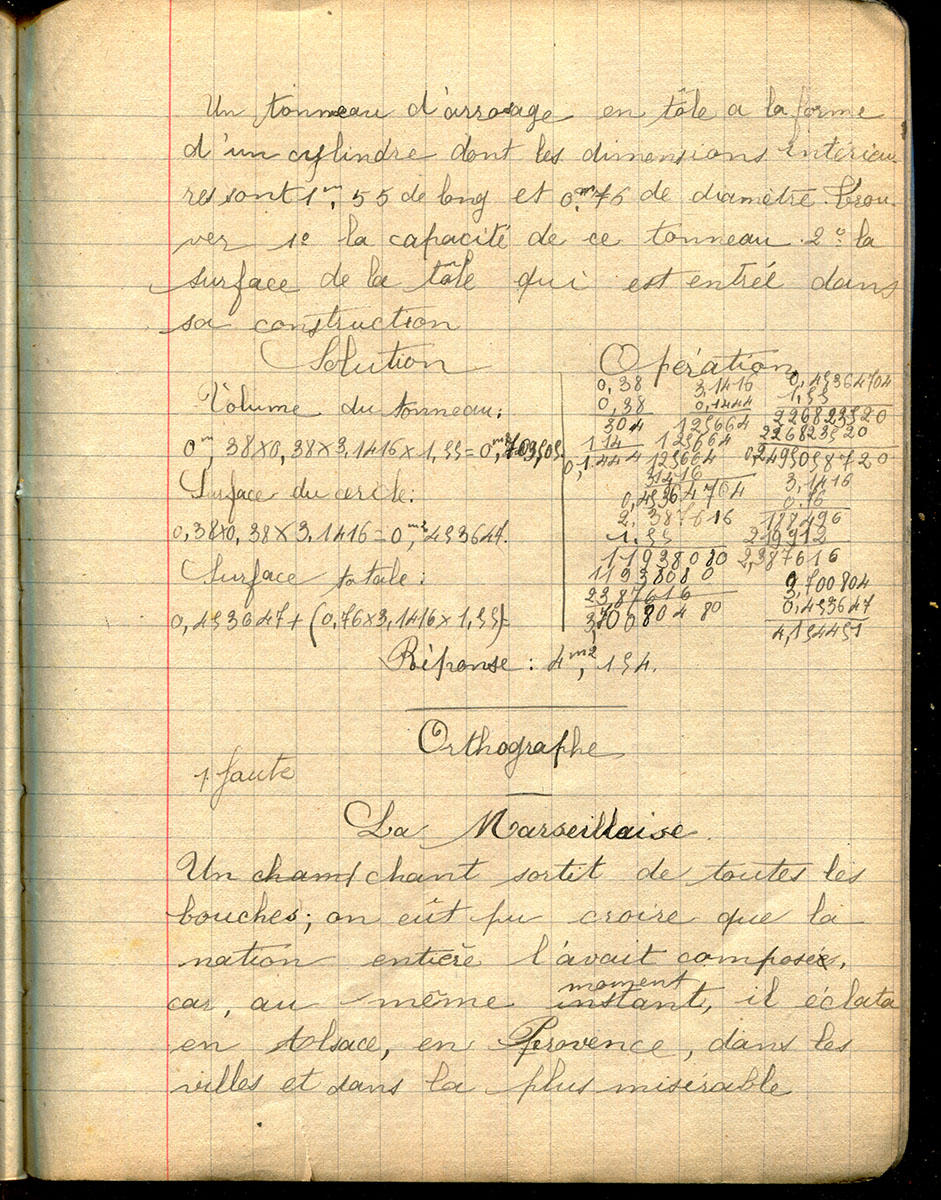 Un tonneau d'arrosage en tôle a la forme
d'un cylindre dont les dimensions intérieu-
res sont 1m,55 de long et 0m,76 de diamètre. Trou-
ver 1º la capacité de ce tonneau. 2º la
surface de la tôle qui est entrée dans
sa construction
Solution
Volume du tonneau:
0m,38×0,38×3,1416×1,55=
Surface du cercle:
0,38×0,38×3,1416=0m2,453647.
Surface totale:
0,453647+(0,76×3,1416×1,55)=
Opération
0,38 3,1416 0,45364704
0,38 0,1444 1,55
304 125664 226823520
114 125664 226823520
0,1444 125664
31416 3,1416
0,45364704 0.76
2.387616 188496
1.55 219912
11938080 2,387616
11938080 3,700804
2387616 0,453647
3,70080480 4,154451
Réponse: 4m2,154.
Orthographe
1 faute
La Marseillaise.
Un cham chant sortit de toutes les
bouches; on eût pu croire que la
nation entière l'avait composé,
moment
car, au même instant, il éclata
en Alsace, en Provence, dans les
villes et dans la plus misérable